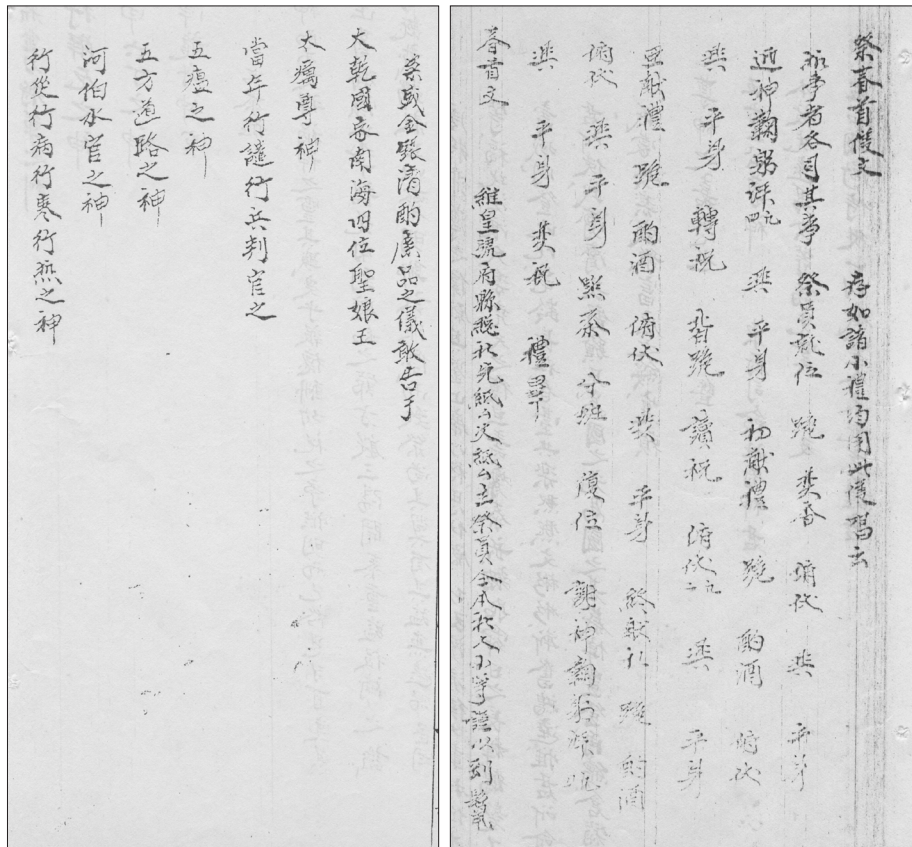 祭春首儀文 存如諸小禮均用此從唱云
執事者各司其事 祭員就位 跪 焚香 俯伏 興 平身
迎神鞠躬拜四凡 興 平身 初献禮 跪 酌酒 俯伏
興 平身 轉祝 皆跪 讀祝 俯伏二凡 興 平身
亞献禮 跪 酌酒 俯伏 興 平身 終献礼 跪 酌酒
俯伏 興 平身 點茶 分班 復位 謝神鞠躬拜
興 平身 焚祝 禮畢
春首文 維皇號府縣總社先紙厶文紙厶云祭員仝本社大小等謹以剛鬣
粢盛金銀清酌庶品之儀敢告于
大乾國家南海四位聖娘王
太癘尊神
當年行譴行兵判官之
五瘟之神
五方道路之神
河伯水官之神
行從行病行寒行熱之神